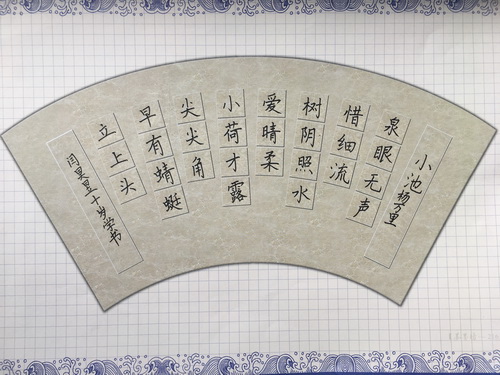 小池 杨万里
泉眼无声
惜细流
树阴照水
爱晴柔
小荷才露
尖尖角
早有蜻蜓
立上头
闫昊昱十岁学书